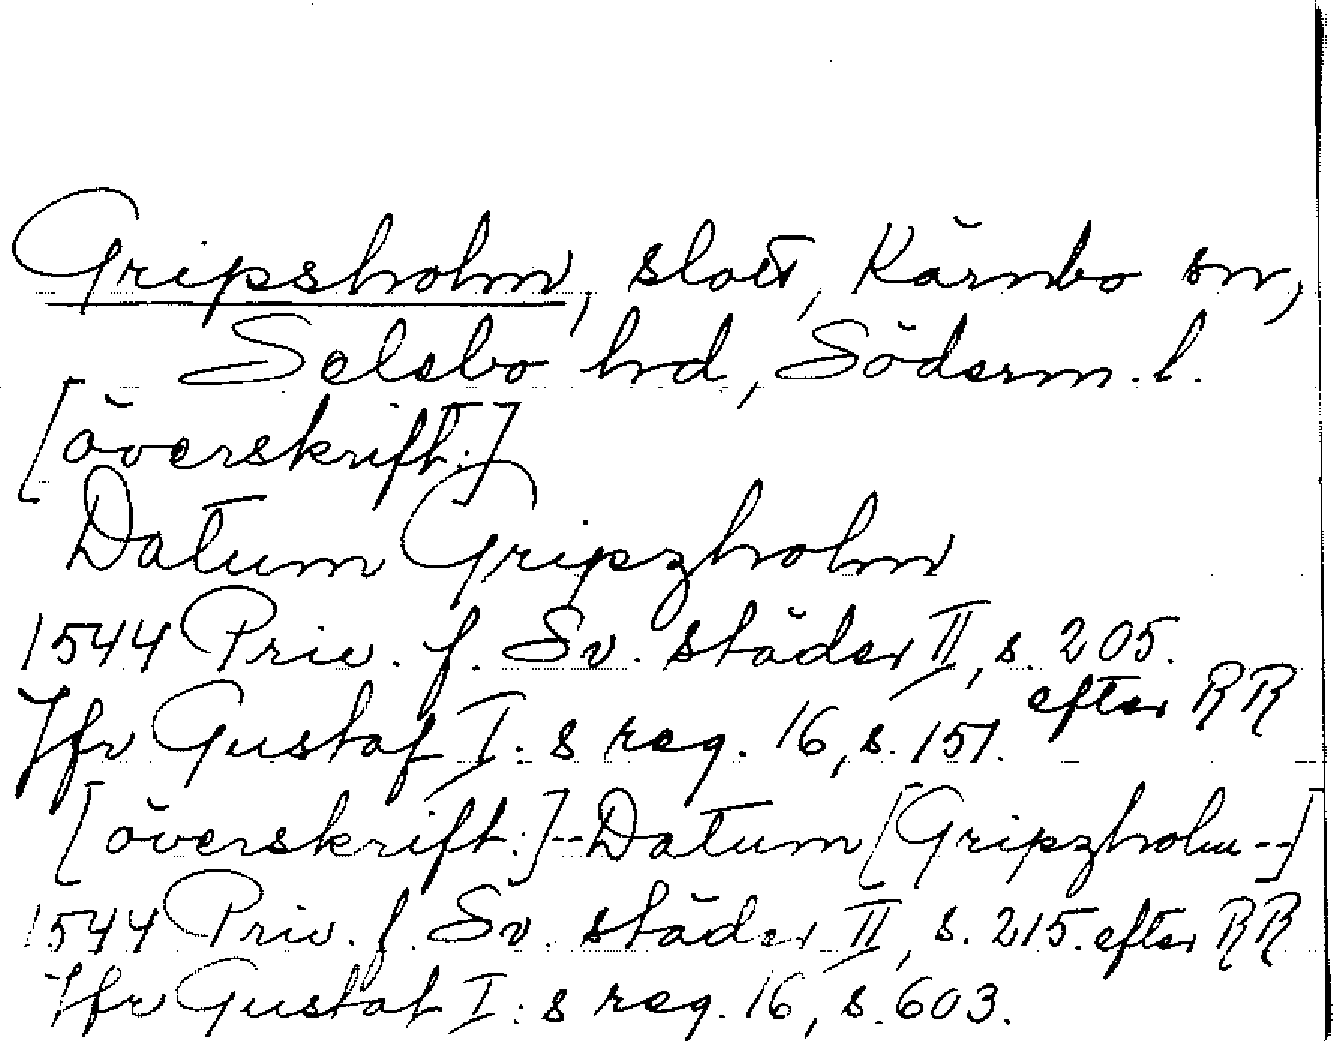 Gripsholm, slott, Kärnbo sn,
Selebo hd, Söderm. l.
[överskrift:]
Datum Gripzholm
1544 Priv. f. Sv. städer II, s. 205.
efter RR
Jfr Gustaf I:s reg. 16, s. 151.
[överskrift:]--Datum [Gripzholm--]
1544 Priv. f. Sv. städer II, s. 215. efter RR
Jfr Gustaf I:s reg. 16, s. 603.